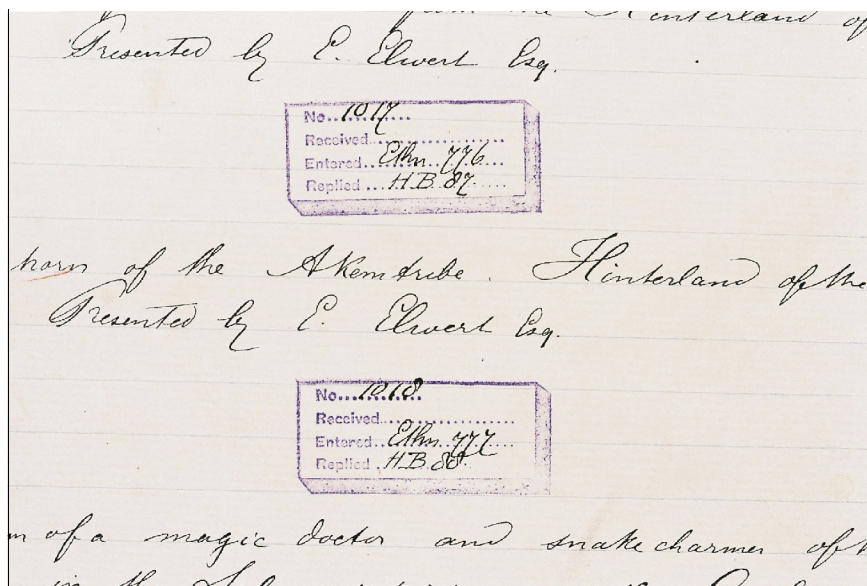 from the Hinterland of
Presented by E. Elwert Esq.
No. 1017
Received
Entered Ethn 776
Replied H.B. 87
horn of the Akemtribe. Hinterland of the
Presented by E. Elwert Esq.
No. 1018
Received
Entered Ethn 777
Replied H.B. 88.
of a magic doctor and snake charmer of
in the